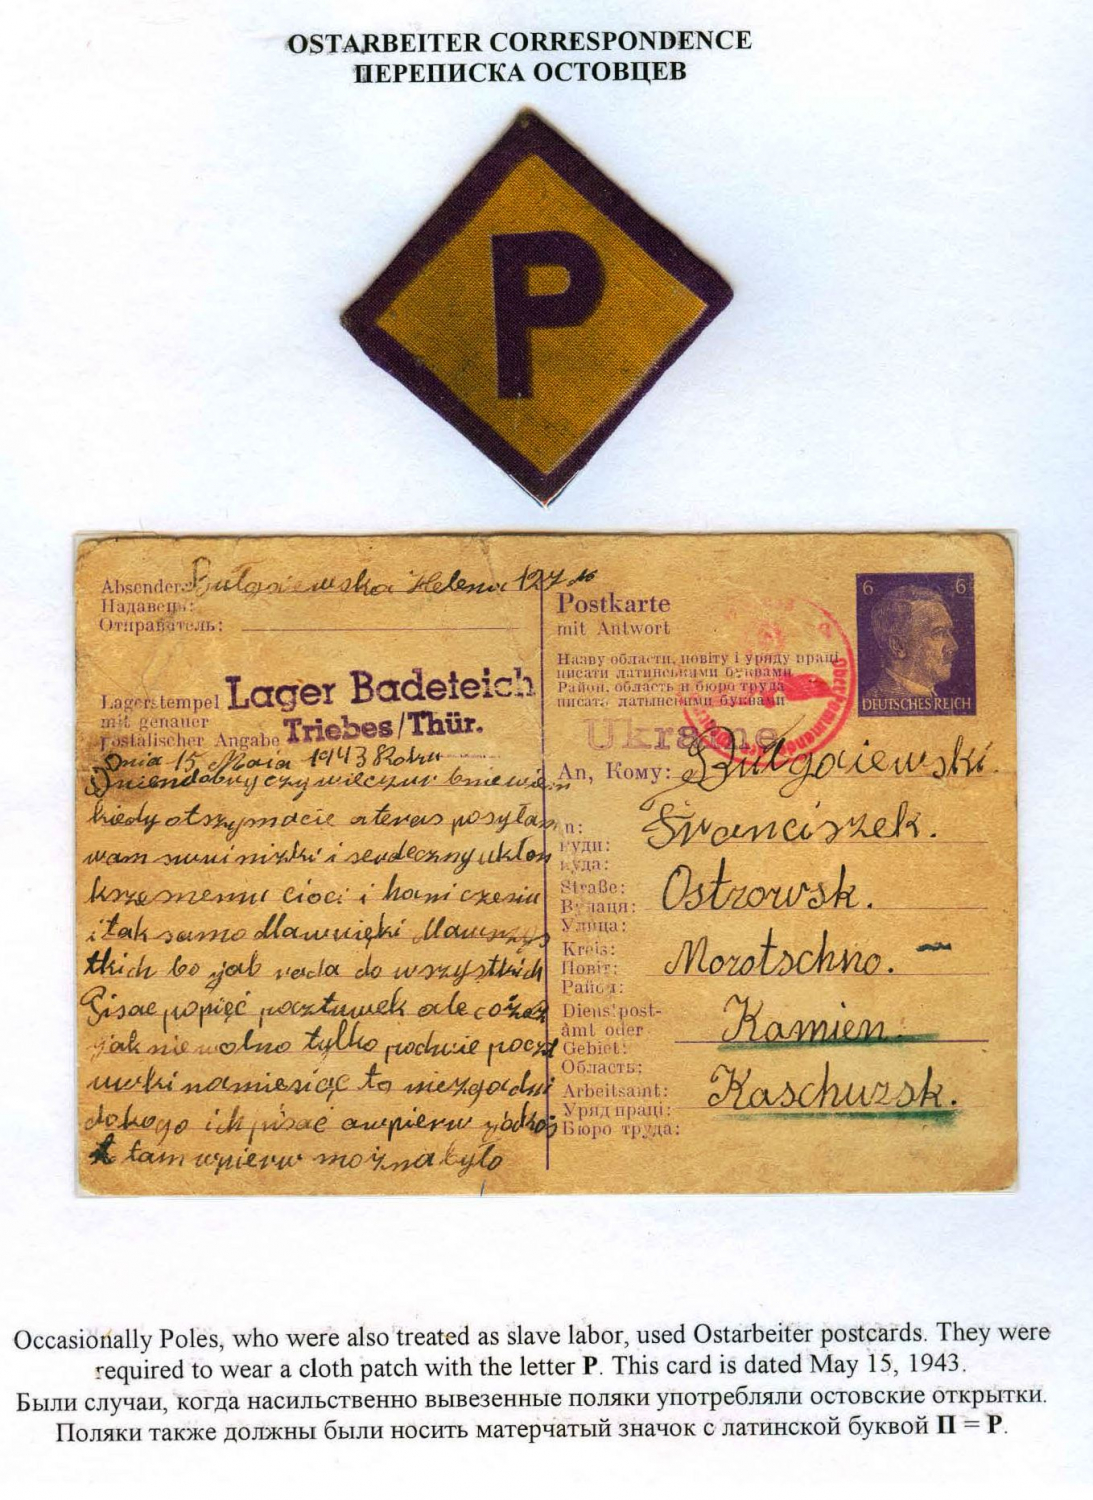 OSTARBEITER CORRESPONDENCE
ПЕРЕПИСКА ОСТОВЦЕВ
P
Absender: Bułgaiewska Helena 127
Надавець:
Отправитель:
Lagerstempel Lager Badeteich
mit genauer Triebes/Thür.
postalischer Angabe
Dnia 15 Maia 1943 Roku
Dniendobry czy wieczur bniewiem
kiedy otszymacie ateras posyłam
wam swui nizki i serdeczny ukłon
krzesnemu cioci i hani czesiu
i tak samo dla
tkich bo jab rada do wszystkich
Pisac popięć pocztuwek ale cóżez
jak niewolno tylko podwie poczt
uwki namiesiąc to niezgadni
dokogo ich pisać awpierw
tam wpierw można było
Postkarte
mit Antwort
Назву области, повіту і уряду праці
писати латинськими буквами
Район, область и бюро труда
писать латынскими буквами
6 6
DEUTSCHES REICH
Ukraine
An, Кому: Bułgaiewski.
Franciszek.
куди:
куда:
Straße: Ostrowsk.
Вулиця:
Улица:
Kreis: Morotschno.
Повіт:
Район:
Dienstpost-
amt oder Kamien.
Gebiet:
Область:
Arbeitsamt: Kaschursk.
Уряд праці:
Бюро труда:
Occasionally Poles, who were also treated as slave labor, used Ostarbeiter postcards. They were
required to wear a cloth patch with the letter P. This card is dated May 15, 1943.
Были случаи, когда насильственно вывезенные поляки употребляли остовские открытки.
Поляки также должны были носить матерчатый значок с латинской буквой П = P.